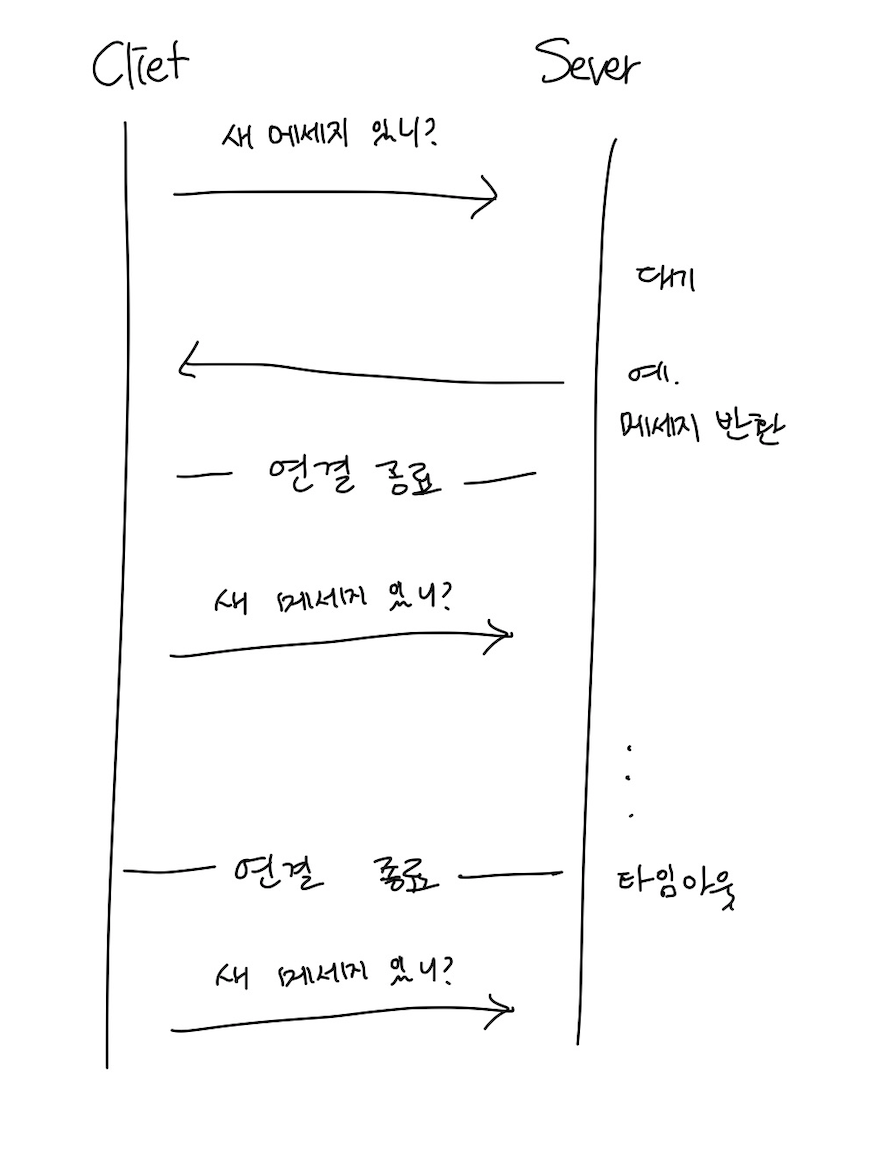 Cliet
Sever
새 메세지 있니?
대기
예.
메세지 반환
연결 종료
새 메세지 있니?
연결 종료
타임아웃
새 메세지 있니?